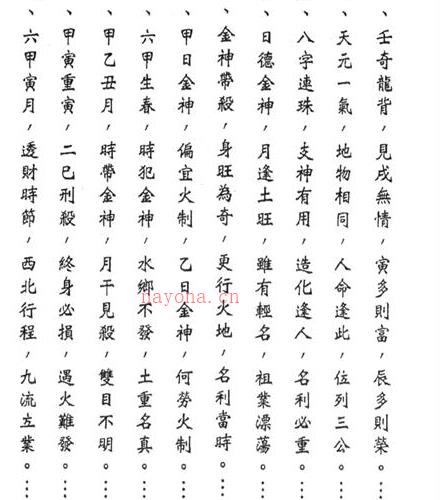 、壬奇龍背，見戌無情，寅多則富，辰多則榮。…
、天元一氣，地物相同，人命逢此，位列三公。…
、八字連珠，支神有用，造化逢人，名利必重。…
、日德金神，月逢土旺，雖有輕名，祖業漂蕩。…
、金神帶殺，身旺為奇，更行火地，名利當時。…
、甲日金神，偏宜火制，乙日金神，何勞火制。…
、六甲生春，時犯金神，水鄉不發，土重名真。…
、甲乙丑月，時帶金神，月干見殺，雙目不明。…
、甲寅重寅，二巳刑殺，終身必損，遇火難發。…
、六甲寅月，透財時節，西北行程，九流立業。…
nayona.cn